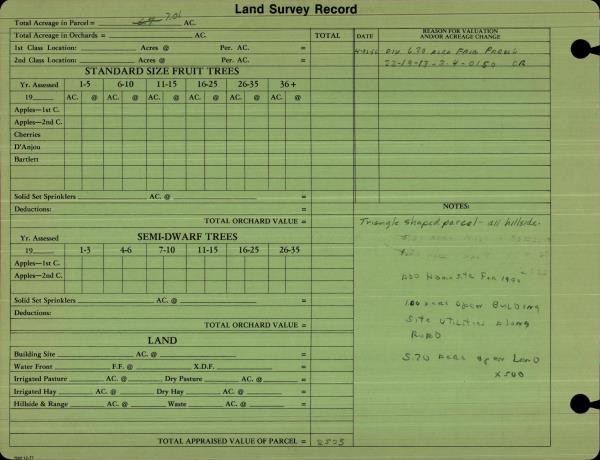 Land Survey Record
Total Acreage in Parcel = 7.01 AC.
Total Acreage in Orchards = AC.
TOTAL
DATE
REASON FOR VALUATION AND/OR ACREAGE CHANGE
1st Class Location: Acres @ Per. AC. =
2nd Class Location: Acres @ Per. AC. =
Div 6.30 acre From Parcel
22-13-13-3-4-0150 CR
STANDARD SIZE FRUIT TREES
Yr. Assessed 1-5 6-10 11-15 16-25 26-35 36+
19 AC. @ AC. @ AC. @ AC. @ AC. @ AC. @
Apples—1st C.
Apples—2nd C.
Cherries
D'Anjou
Bartlett
Solid Set Sprinklers AC. @ =
Deductions: =
TOTAL ORCHARD VALUE =
NOTES:
Triangle shaped parcel - all hillside.
SEMI-DWARF TREES
Yr. Assessed 1-3 4-6 7-10 11-15 16-25 26-35
19 AC. @ AC. @ AC. @ AC. @ AC. @ AC. @
Apples—1st C.
Apples—2nd C.
Solid Set Sprinklers AC. @ =
Deductions:
TOTAL ORCHARD VALUE =
ADD Homesite For
1.00 acre upon Building
Site utilities along
Road
5.70 acre open Land
X 500
LAND
Building Site AC. @ =
Water Front F.F. @ X.D.F. =
Irrigated Pasture AC. @ Dry Pasture AC. @ =
Irrigated Hay AC. @ Dry Hay AC. @ =
Hillside & Range AC. @ Waste AC. @ =
TOTAL APPRAISED VALUE OF PARCEL = 2505